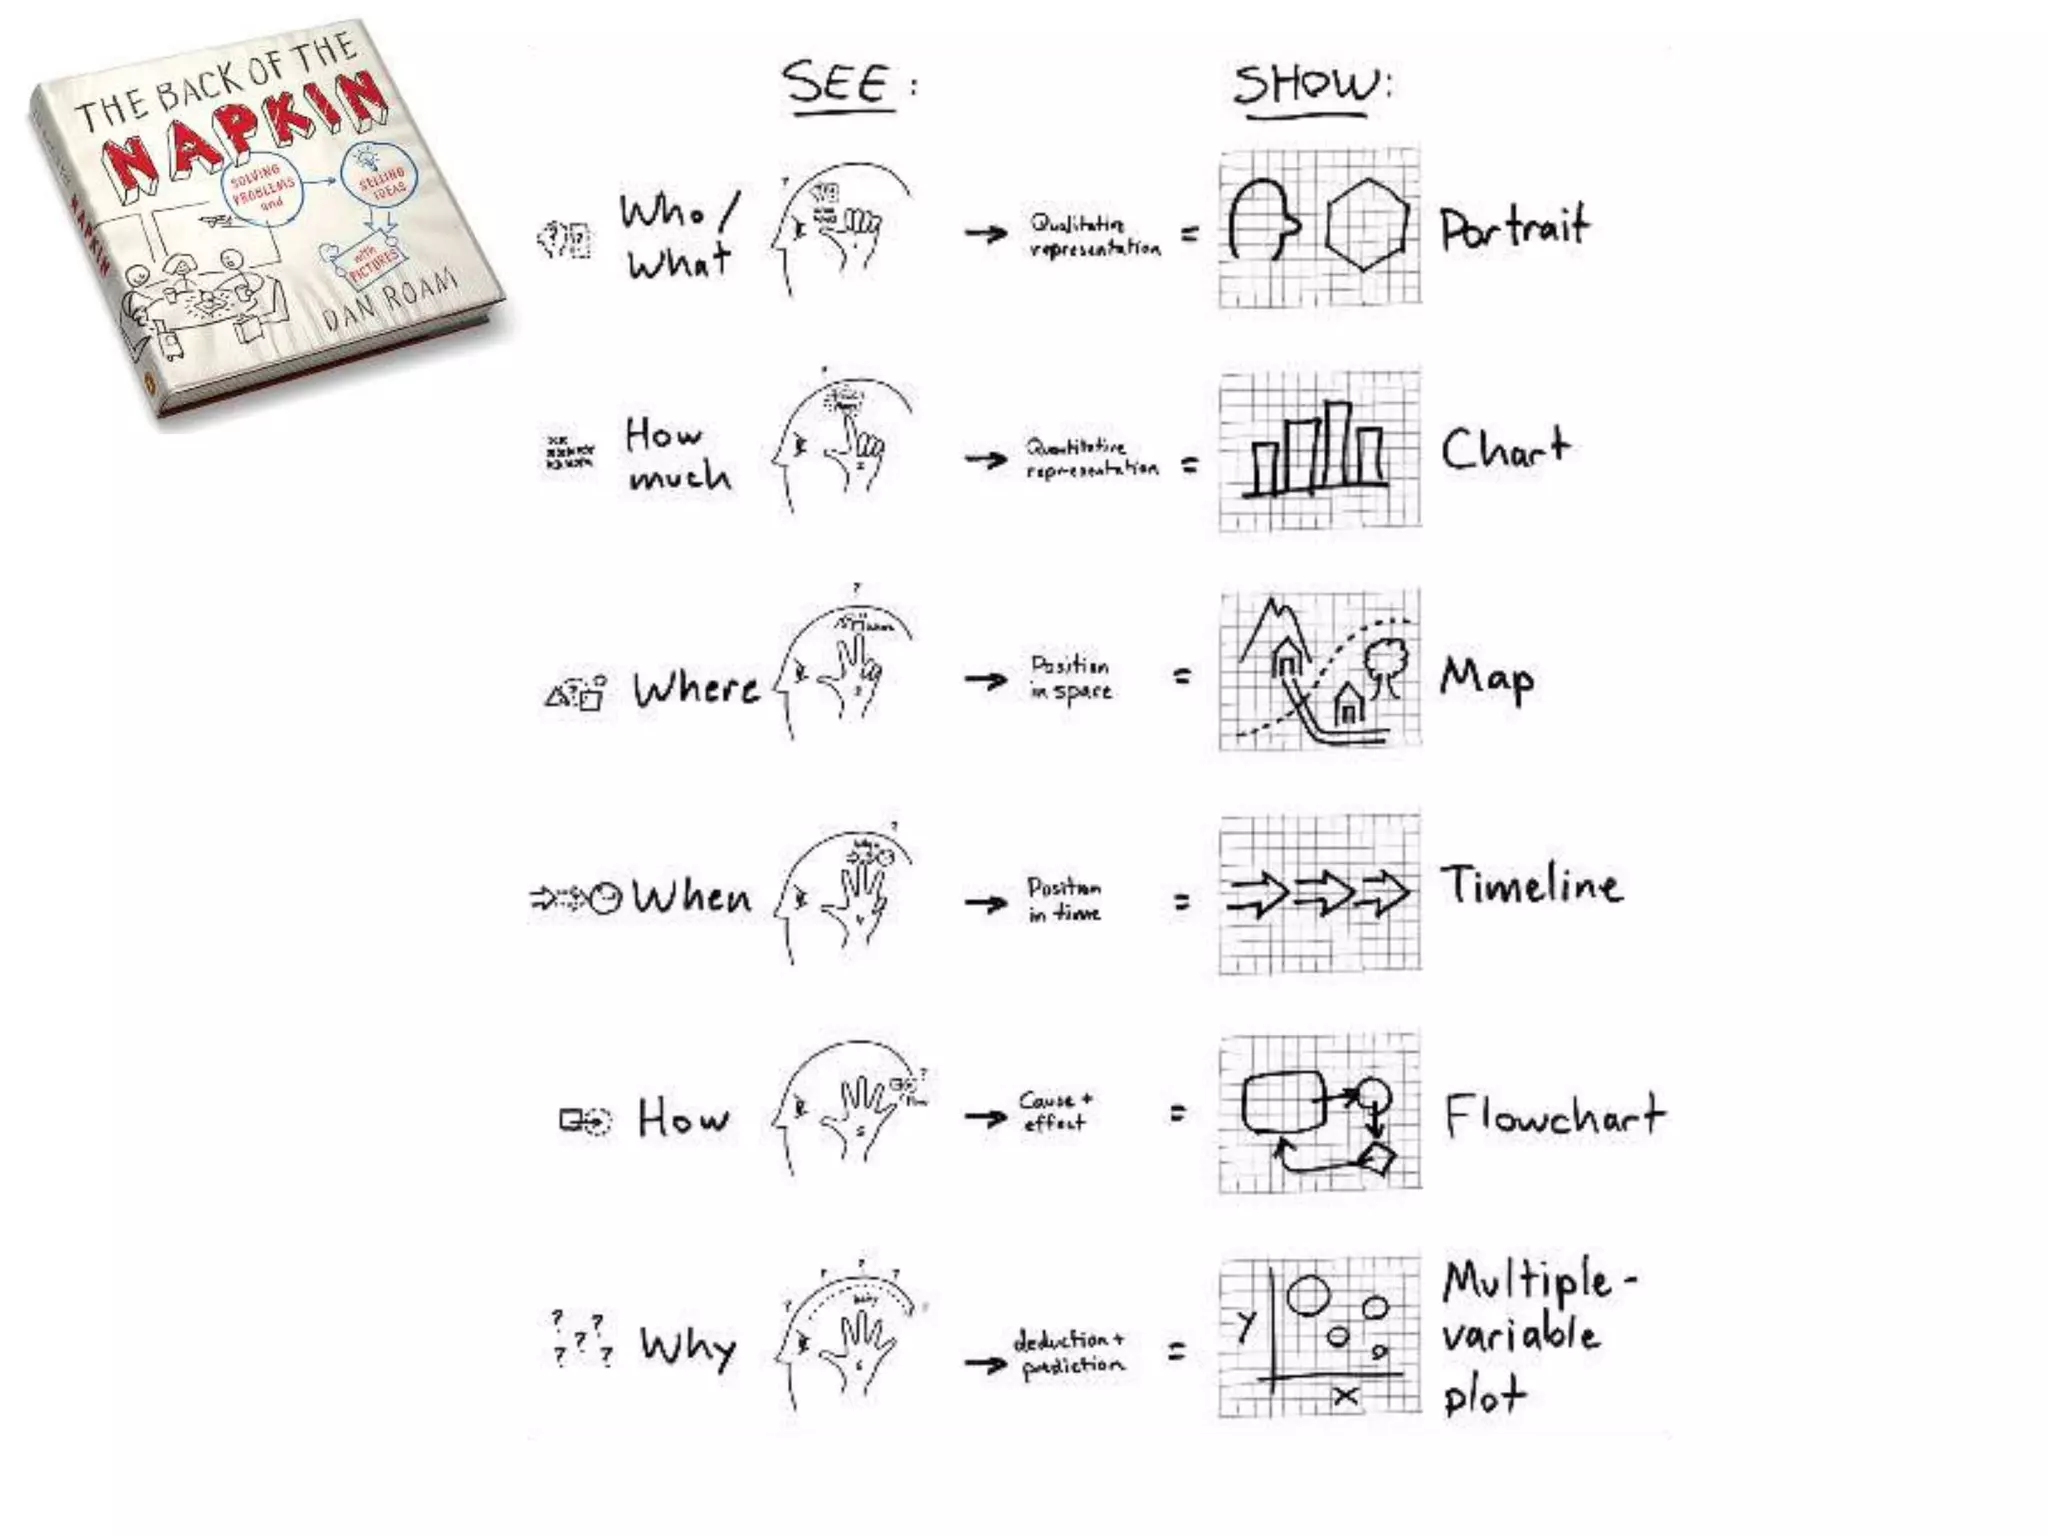 THE BACK OF THE
NAPKIN
SOLVING
PROBLEMS
and
SELLING
IDEAS
with
PICTURES
DAN ROAM
NAPKIN
SEE:
SHOW:
Who/
What
Qualitative
representation
=
Portrait
How
much
Quantitative
representation
=
Chart
Where
Position
in space
=
Map
When
Position
in time
=
Timeline
How
Cause +
effect
=
Flowchart
? ? ? ? ?
Why
deduction +
prediction
=
Y
X
Multiple-
variable
plot